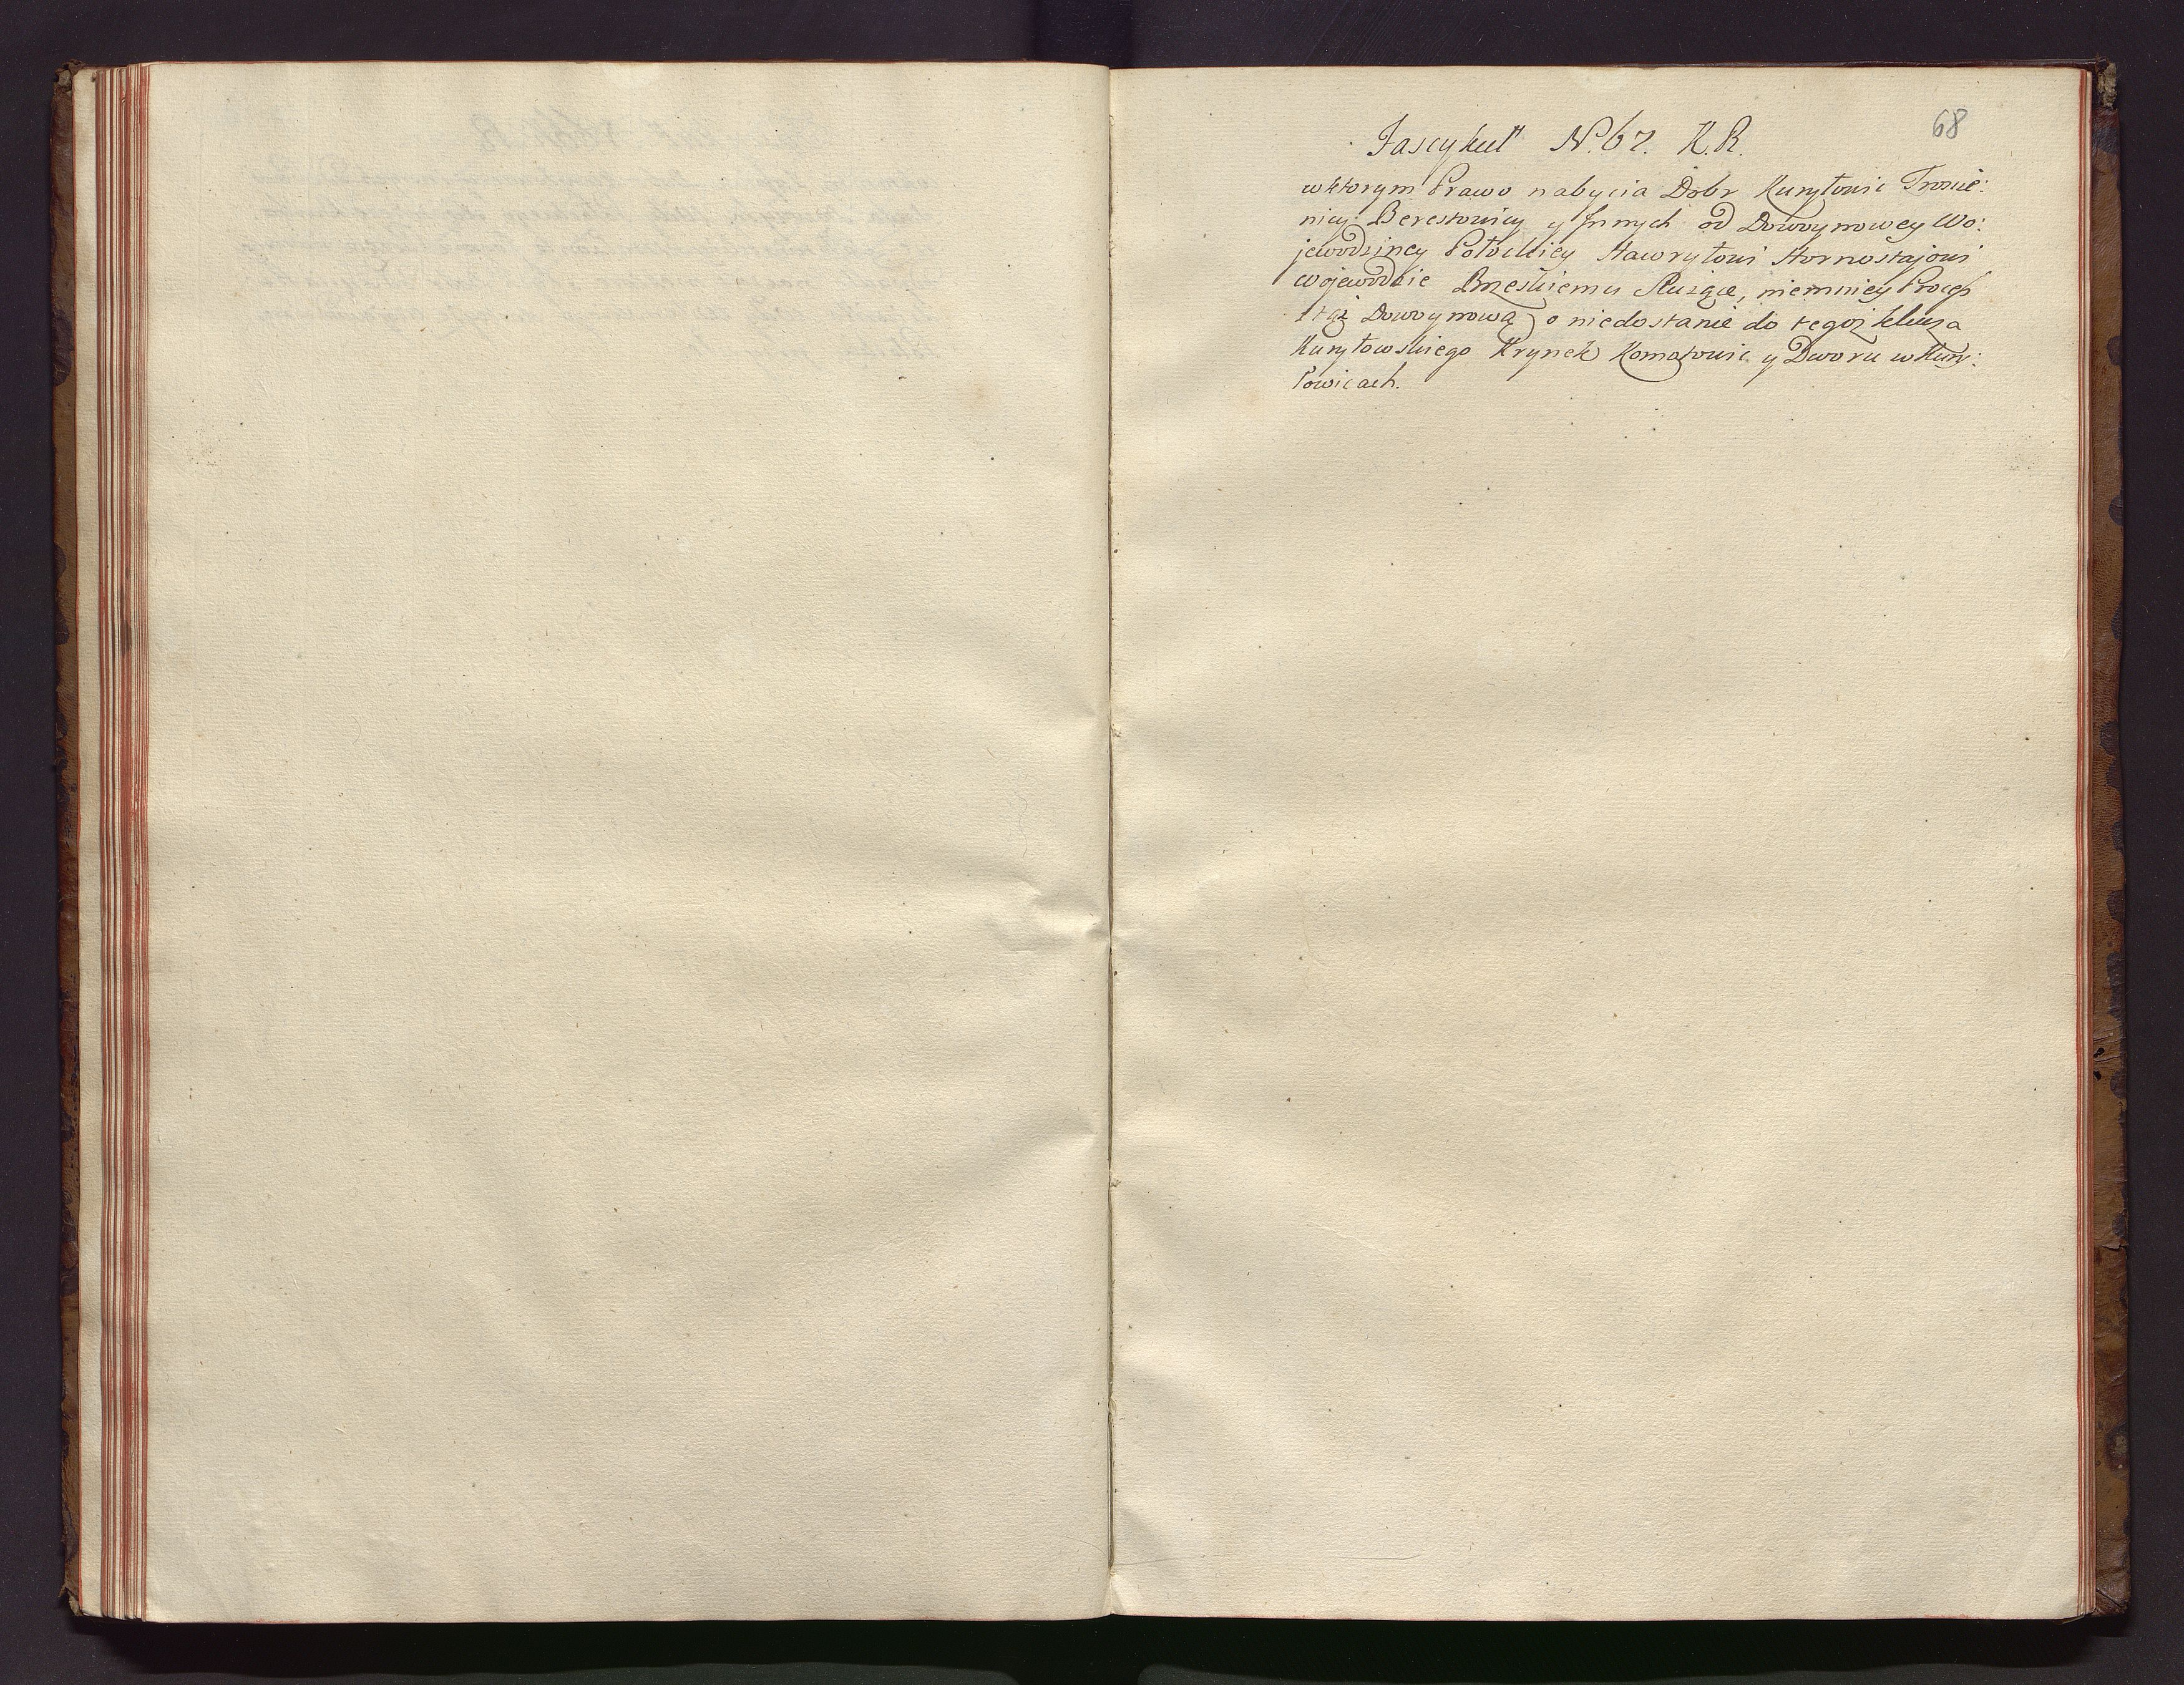 68
Fascykuł N. 67. K. R.
w ktorym Prawo nabycia Dobr Kuryłowic Tronie:
nicy Berestowicy y Jnnych od Dowoynowey Wo:
jewodzincy Połockiey Hawryłowi Hornostajowi
Wojewodzie Brzeskiemu służące, niemniey Process
z tąż Dowoynową o niedostanie do tegoż klucza
Kuryłowskiego Krynek Komotowic y Dworu w Kury:
łowicach.